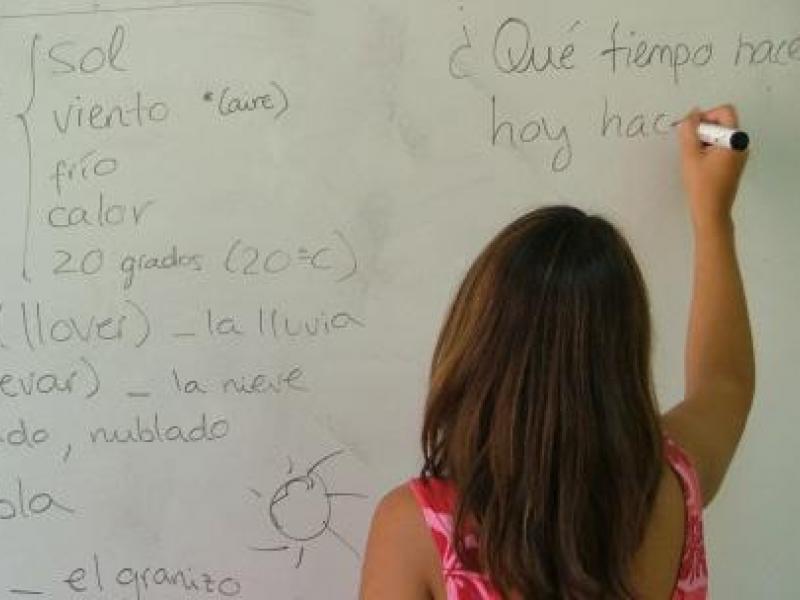 sol
viento *(aire)
frío
calor
20 grados (20ºC)
(llover) _ la lluvia
evar) _ la nieve
do, nublado
ola
_ el granizo
¿Qué tiempo hace
hoy hac